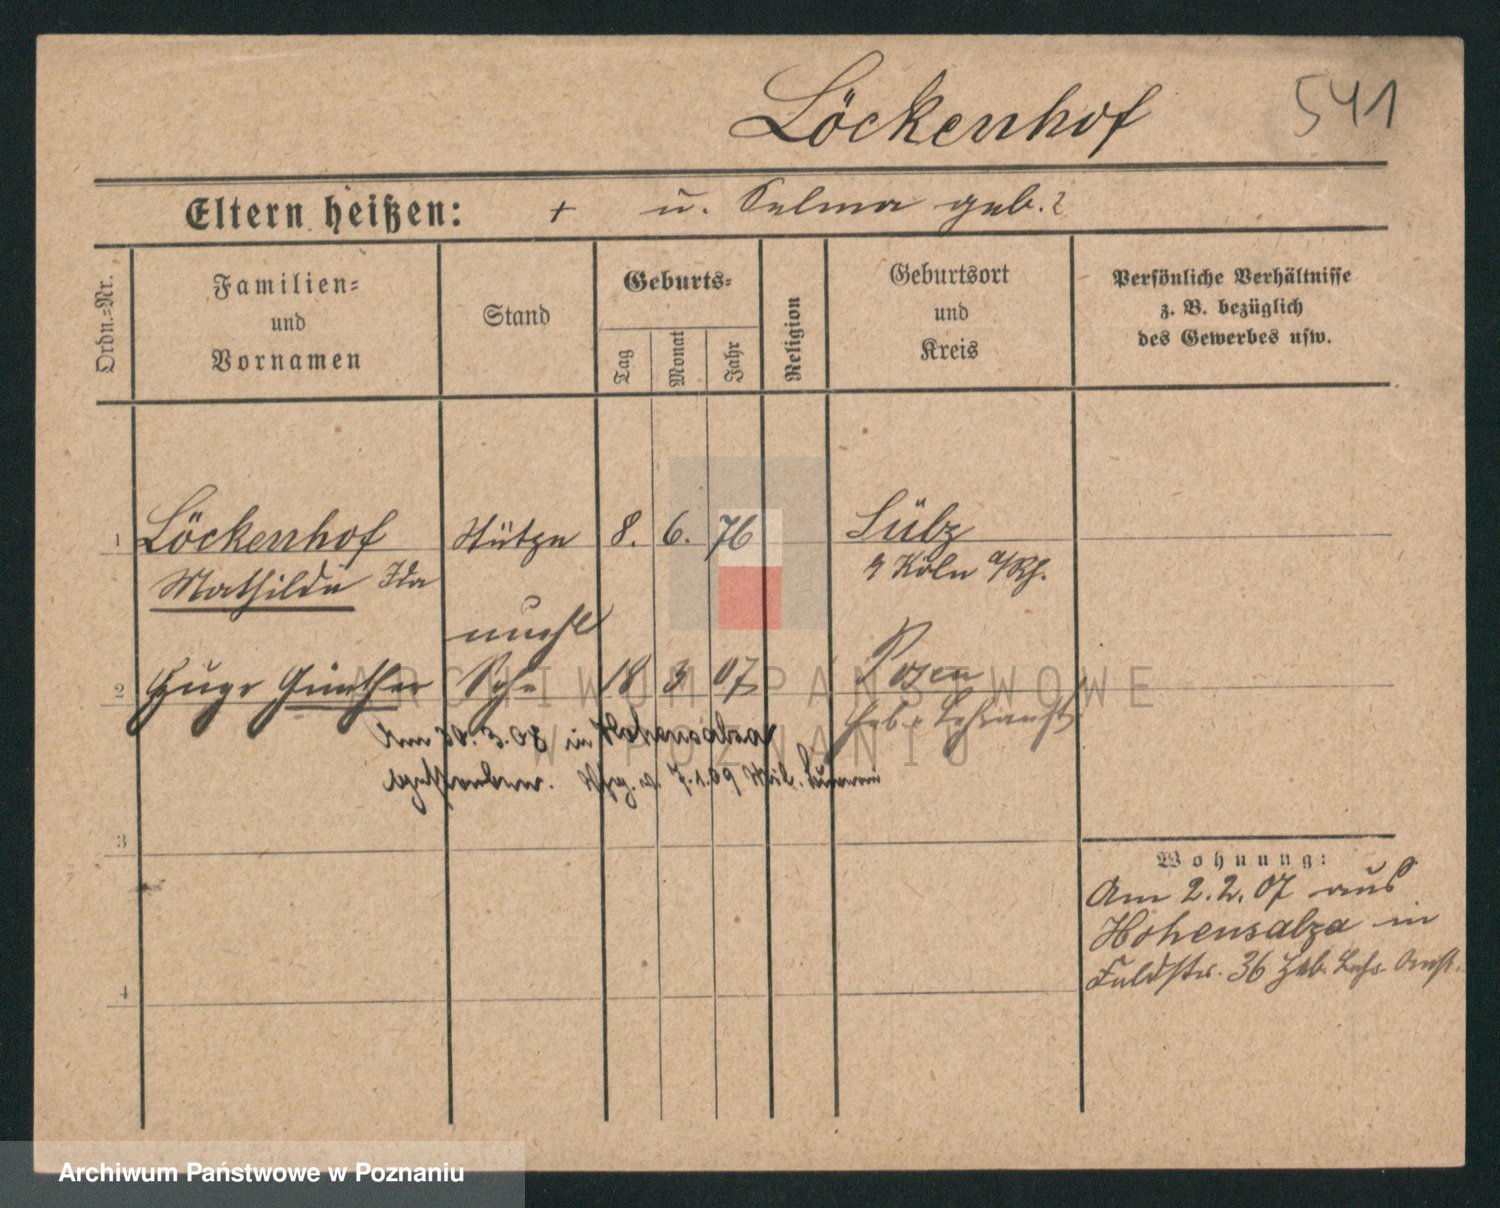 Löckenhof
541
Eltern heißen: + u. Selma geb. ?
Ordn.=Nr.
Familien=
und
Vornamen
Stand
Geburts=
Tag
Monat
Jahr
Religion
Geburtsort
und
Kreis
Persönliche Verhältnisse
z. B. bezüglich
des Gewerbes usw.
1 Löckenhof Stütze 8. 6. 76 Lübz
Mathilde Ida Köln a/Rh.
unehl
2 Hugo Günther Sohn 18 3 07 Posen
Heb. Lehranst
Am 20. 3. 08 in Hohensalza
verstorben. 7.1.09
3
Wohnung:
Am 2.2.07 aus
Hohensalza in
Feldstr. 36 Heb. Lehr Anst.
4
ARCHIWUM PAŃSTWOWE
W POZNANIU
Archiwum Państwowe w Poznaniu